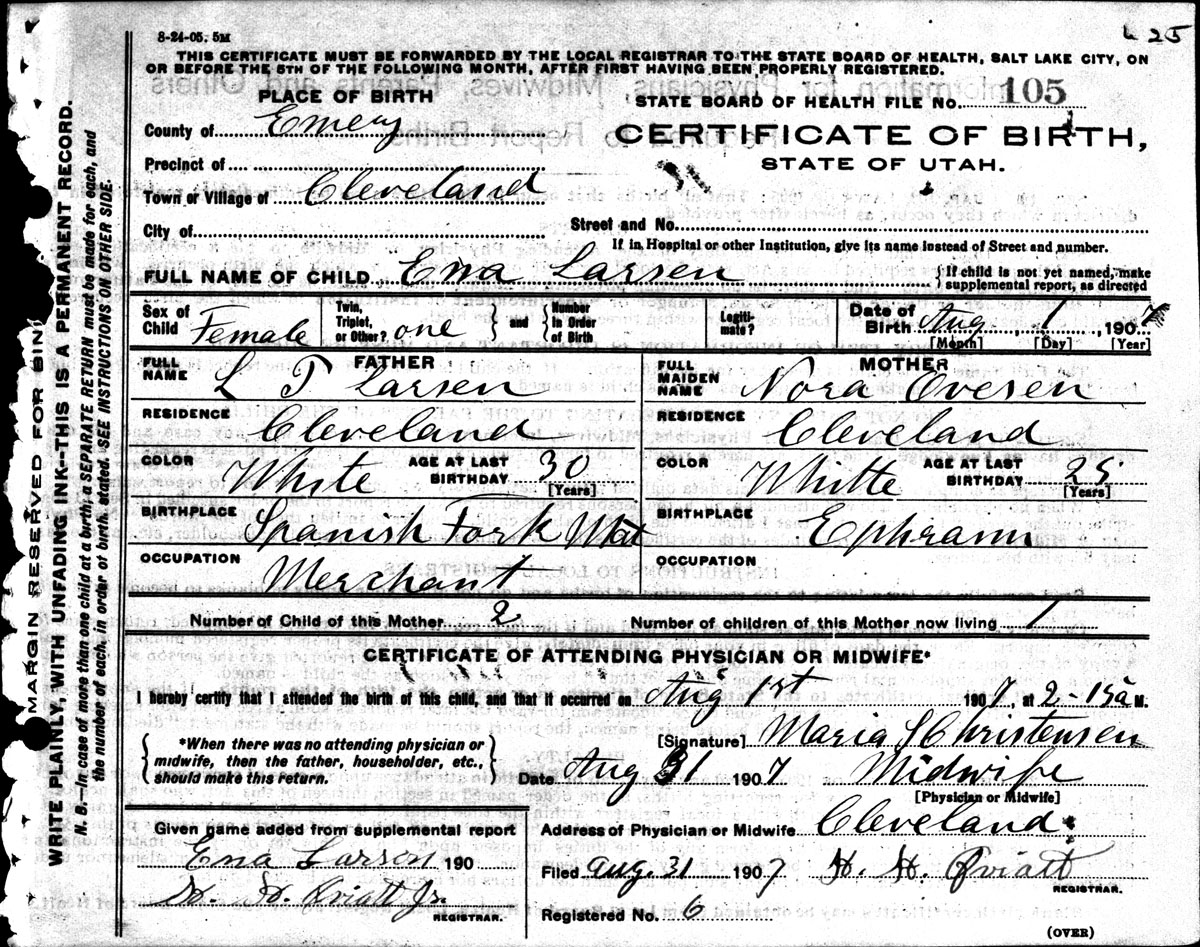 8-24-05. 5M
25
THIS CERTIFICATE MUST BE FORWARDED BY THE LOCAL REGISTRAR TO THE STATE BOARD OF HEALTH, SALT LAKE CITY, ON
OR BEFORE THE 5TH OF THE FOLLOWING MONTH, AFTER FIRST HAVING BEEN PROPERLY REGISTERED.
PLACE OF BIRTH
STATE BOARD OF HEALTH FILE No. 105
County of Emery
CERTIFICATE OF BIRTH,
STATE OF UTAH.
Precinct of
Town or Village of Cleveland
City of
Street and No.
If in Hospital or other Institution, give its name instead of Street and number.
FULL NAME OF CHILD Ena Larsen
If child is not yet named, make
supplemental report, as directed
Sex of Child Female
Twin, Triplet, or Other? one
and
Number in Order of Birth
Legiti-mate?
Date of Birth Aug, 1, 1907
[Month] [Day] [Year]
FATHER
FULL NAME L T Larsen
MOTHER
FULL MAIDEN NAME Nora Ovesen
RESIDENCE Cleveland
RESIDENCE Cleveland
COLOR White
AGE AT LAST BIRTHDAY 30
[Years]
COLOR Whitte
AGE AT LAST BIRTHDAY 25
[Years]
BIRTHPLACE Spanish Fork Utt
BIRTHPLACE Ephramn
OCCUPATION Merchant
OCCUPATION
Number of Child of this Mother 2
Number of children of this Mother now living 1
CERTIFICATE OF ATTENDING PHYSICIAN OR MIDWIFE*
I hereby certify that I attended the birth of this child, and that it occurred on Aug 1st 1907, at 2-15a M.
*When there was no attending physician or
midwife, then the father, householder, etc.,
should make this return.
[Signature] Maria S Christensen
Date Aug 31 1907 Midwife
[Physician or Midwife]
Given name added from supplemental report
Ena Larsen 190
H. H. Oviatt Jr.
REGISTRAR.
Address of Physician or Midwife Cleveland
Filed aug. 31 1907 H. H. Oviatt
REGISTRAR.
Registered No. 6
(OVER)
MARGIN RESERVED FOR BIN
WRITE PLAINLY, WITH UNFADING INK--THIS IS A PERMANENT RECORD.
N. B.--In case of more than one child at a birth, a SEPARATE RETURN must be made for each, and
the number of each, in order of birth, stated. SEE INSTRUCTIONS ON OTHER SIDE.